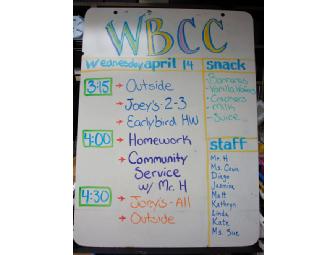 WBCC
Wednesday april 14
3:15 → Outside
→ Joey's 2-3
→ Earlybird HW
4:00 → Homework
→ Community
Service
w/ Mr. H
4:30 → Joey's-All
→ Outside
snack
- Bananas
- Vanilla Wafers
- Crackers
- Milk
- Juice
staff
Mr. H
Ms. Cawn
Diego
Jasmine
Matt
Kathryn
Linda
Kate
Ms. Sue